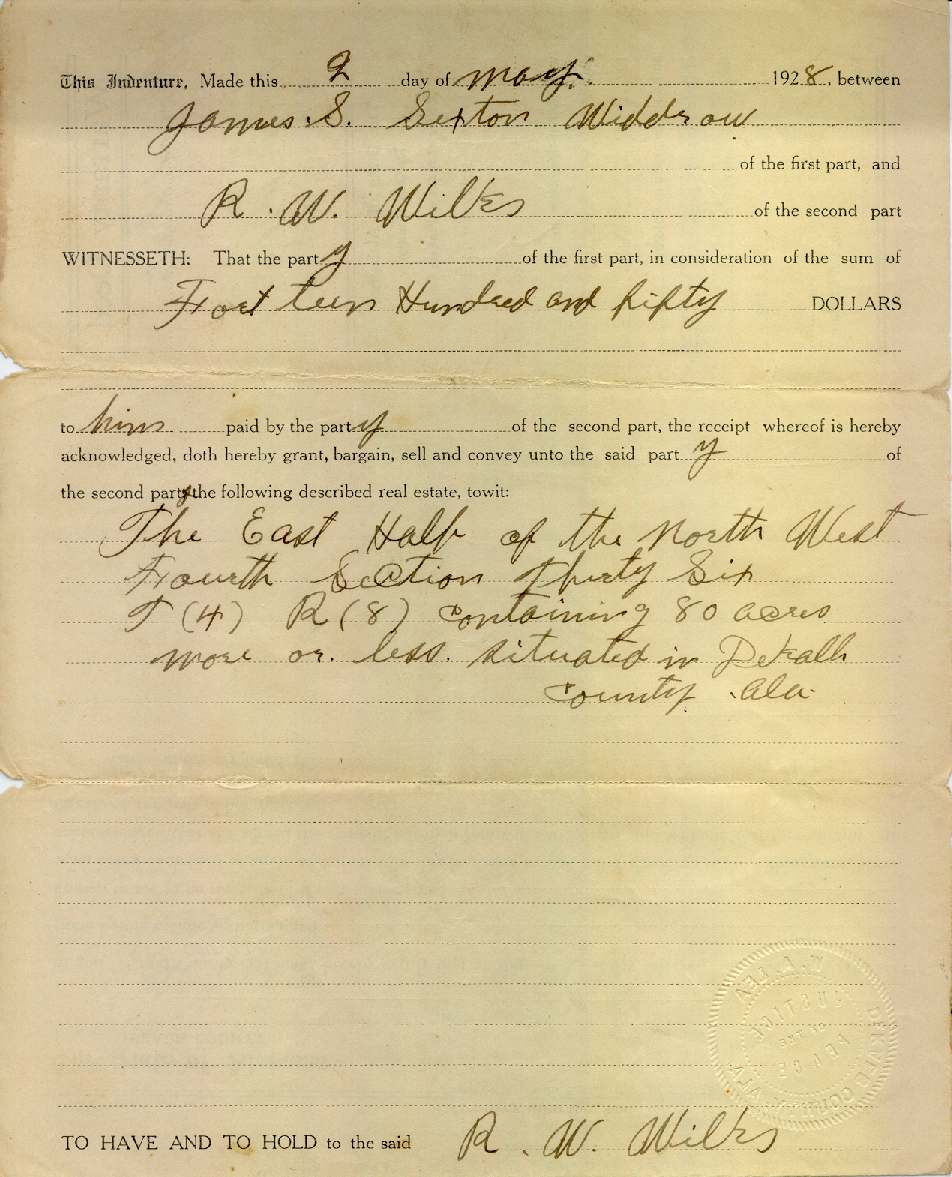 This Indenture, Made this 2 day of May. 1928, between
James. S. Sexton Widdrow
of the first part, and
R. W. Wilks
of the second part
WITNESSETH: That the party of the first part, in consideration of the sum of
Forteen Hundred and fifty DOLLARS
to him paid by the party of the second part, the receipt whereof is hereby
acknowledged, doth hereby grant, bargain, sell and convey unto the said party of
the second party the following described real estate, towit:
The East Half of the North West
Fourth Section Thirty Six
T (4) R (8) containing 80 acres
more or. less. situated in Dekalb
County. Ala.
W. L. LEA
JUSTICE
OF THE
PEACE
DEKALB COUNTY, ALA.
TO HAVE AND TO HOLD to the said R. W. Wilks